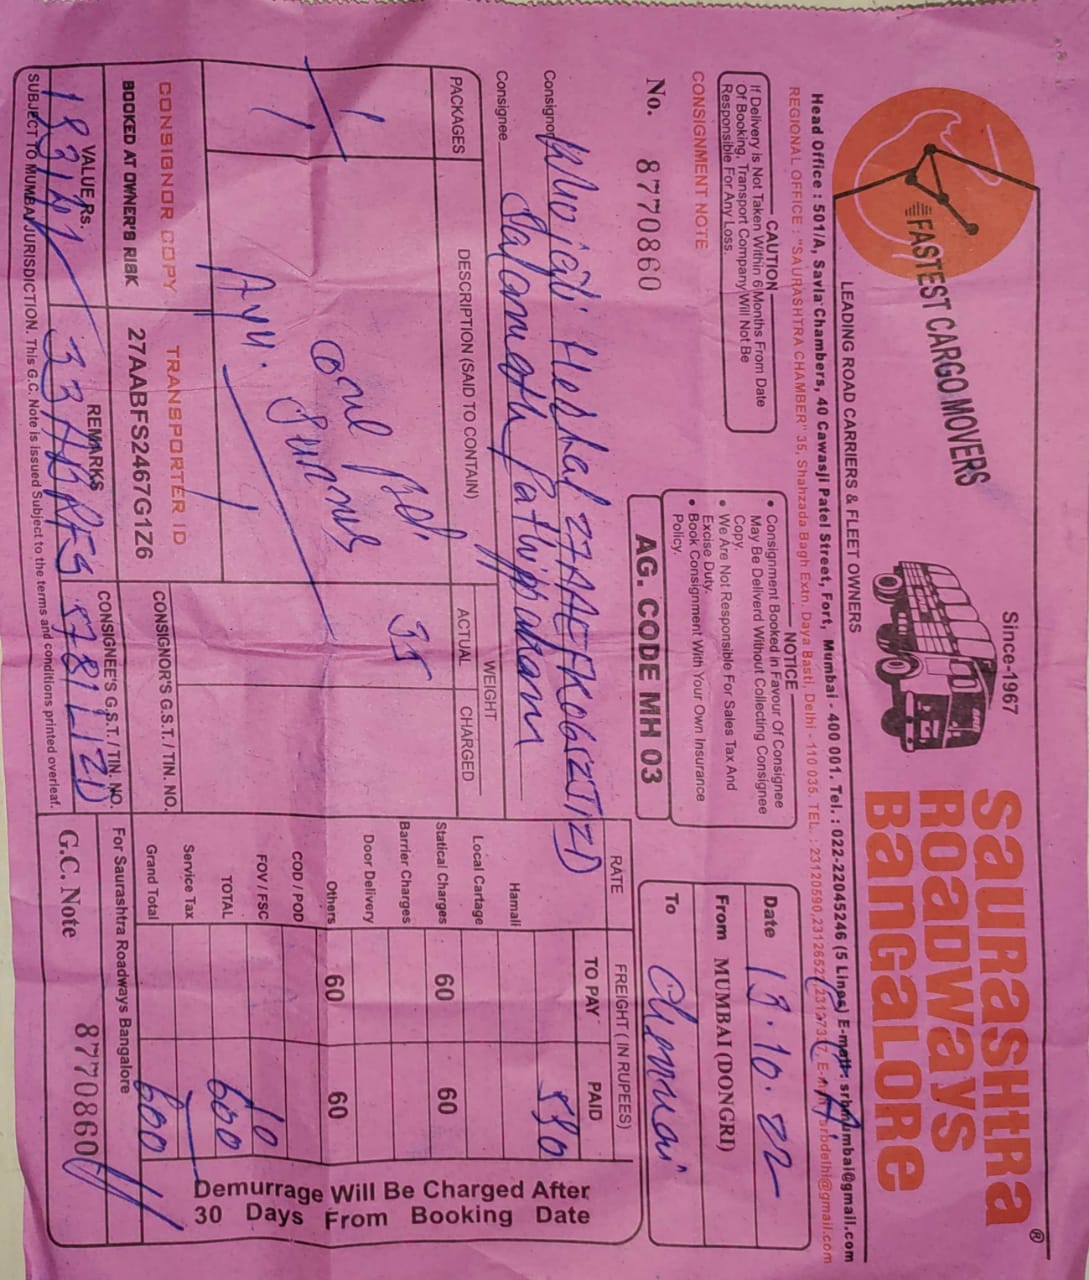 Since-1967
SauRaSHtRa
ROaDWays
BanGaLORe
®
FASTEST CARGO MOVERS
LEADING ROAD CARRIERS & FLEET OWNERS
Head Office : 501/A, Savla Chambers, 40 Cawasji Patel Street, Fort, Mumbai - 400 001. Tel. : 022-22045246 (5 Lines) E-mail : srbmumbai@gmail.com
REGIONAL OFFICE : "SAURASHTRA CHAMBER" 35, Shahzada Bagh Extn. Daya Basti, Delhi - 110 035. TEL. : 23120590, srbdelhi@gmail.com
CAUTION
If Delivery is Not Taken Within 6 Months From Date
Of Booking, Transport Company Will Not Be
Responsible For Any Loss.
NOTICE
• Consignment Booked in Favour Of Consignee
May Be Deliverd Without Collecting Consignee
Copy.
• We Are Not Responsible For Sales Tax And
Excise Duty.
• Book Consignment With Your Own Insurance
Policy.
Date 13.10.22
From MUMBAI (DONGRI)
To Chennai
CONSIGNMENT NOTE
No. 8770860
AG. CODE MH 03
Consignor
Consignee
PACKAGES
DESCRIPTION (SAID TO CONTAIN)
WEIGHT
ACTUAL
CHARGED
RATE
FREIGHT ( IN RUPEES)
TO PAY
PAID
1
35
Ayu.
Hamali
Local Cartage
Statical Charges 60 60
Barrier Charges
Door Delivery
Others 60 60
COD / POD
FOV / FSC 10
TOTAL 600
Service Tax
Grand Total 600
Demurrage Will Be Charged After
30 Days From Booking Date
CONSIGNOR COPY
BOOKED AT OWNER'S RISK
TRANSPORTER ID
27AABFS2467G1Z6
CONSIGNOR'S G.S.T. / TIN. NO.
VALUE Rs.
REMARKS
CONSIGNEE'S G.S.T. / TIN. NO.
For Saurashtra Roadways Bangalore
G.C. Note 8770860
SUBJECT TO MUMBAI JURISDICTION. This G.C. Note is issued Subject to the terms and conditions printed overleaf.